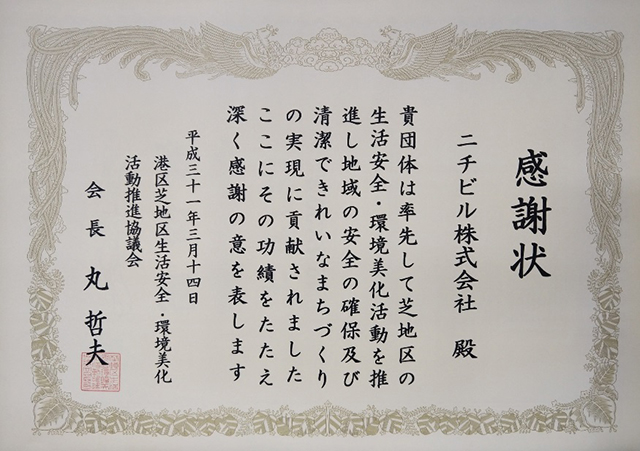 感謝状
ニチビル株式会社 殿
貴団体は率先して芝地区の
生活安全・環境美化活動を推
進し地域の安全の確保及び
清潔できれいなまちづくり
の実現に貢献されました
ここにその功績をたたえ
深く感謝の意を表します
平成三十一年三月十四日
港区芝地区生活安全・環境美化
活動推進協議会
会長 丸 哲夫